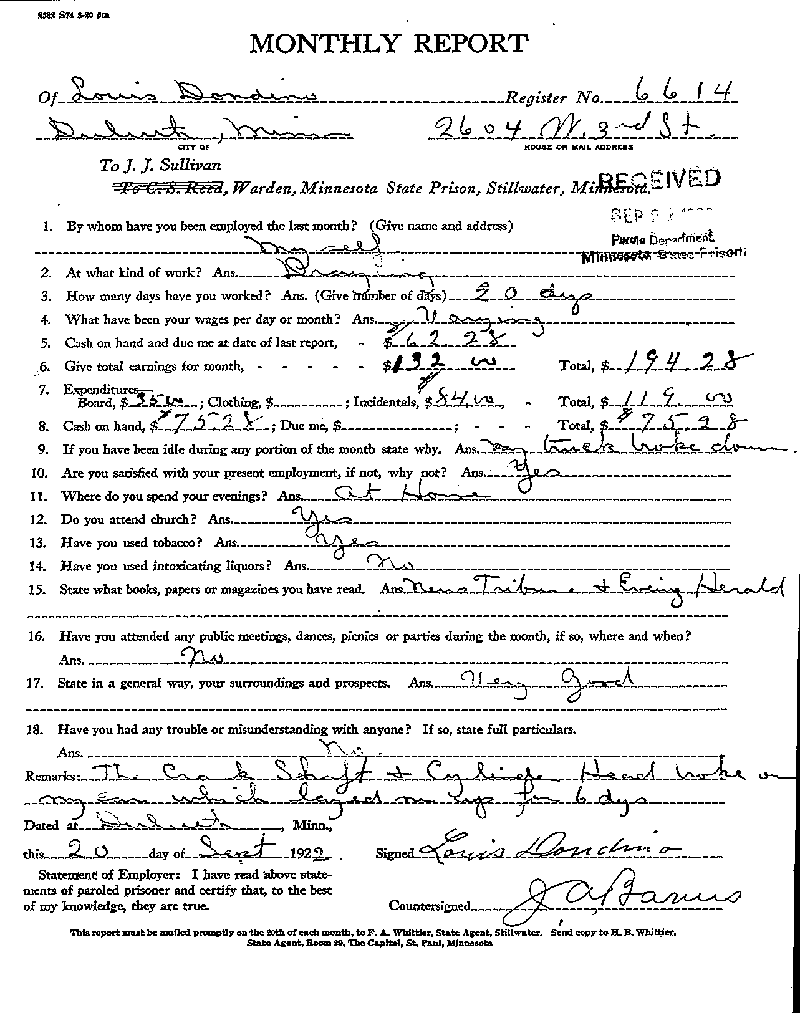 MONTHLY REPORT
Of Louis Dondino Register No. 6614
Duluth, Minn 2604 W. 3rd St.
CITY OF HOUSE OR MAIL ADDRESS
To J. J. Sullivan
To C. S. Reed, Warden, Minnesota State Prison, Stillwater, Minnesota.
RECEIVED
SEP
Parole Department
Minnesota State Prison
1. By whom have you been employed the last month? (Give name and address)
my self
2. At what kind of work? Ans. Draying
3. How many days have you worked? Ans. (Give number of days) 20 dys
4. What have been your wages per day or month? Ans. Varying
5. Cash on hand and due me at date of last report, - $ 62 28
6. Give total earnings for month, - - - - - $ 132 00 Total, $ 194 28
7. Expenditures—
Board, $ 35 00; Clothing, $ ; Incidentals, $ 84.00 - Total, $ 119 00
8. Cash on hand, $ 75.28; Due me, $ ; - - Total, $ 75.28
9. If you have been idle during any portion of the month state why. Ans. my truck broke down.
10. Are you satisfied with your present employment, if not, why not? Ans. Yes
11. Where do you spend your evenings? Ans. At Home
12. Do you attend church? Ans. Yes
13. Have you used tobacco? Ans. Yes
14. Have you used intoxicating liquors? Ans. No
15. State what books, papers or magazines you have read. Ans News Tribune & Evening Herald
16. Have you attended any public meetings, dances, picnics or parties during the month, if so, where and when?
Ans. No
17. State in a general way, your surroundings and prospects. Ans. Very Good
18. Have you had any trouble or misunderstanding with anyone? If so, state full particulars.
Ans. No.
Remarks: The Crank Shaft & Cylinder Head broke on
my car which layed me up for 6 dys
Dated at Duluth, Minn.,
this 20 day of Sept 1922. Signed Louis Dondino
Statement of Employer: I have read above state-
ments of paroled prisoner and certify that, to the best
of my knowledge, they are true. Countersigned J A Barnes
This report must be mailed promptly on the 20th of each month, to F. A. Whittier, State Agent, Stillwater. Send copy to H. B. Whittier,
State Agent, Room 29, The Capitol, St. Paul, Minnesota